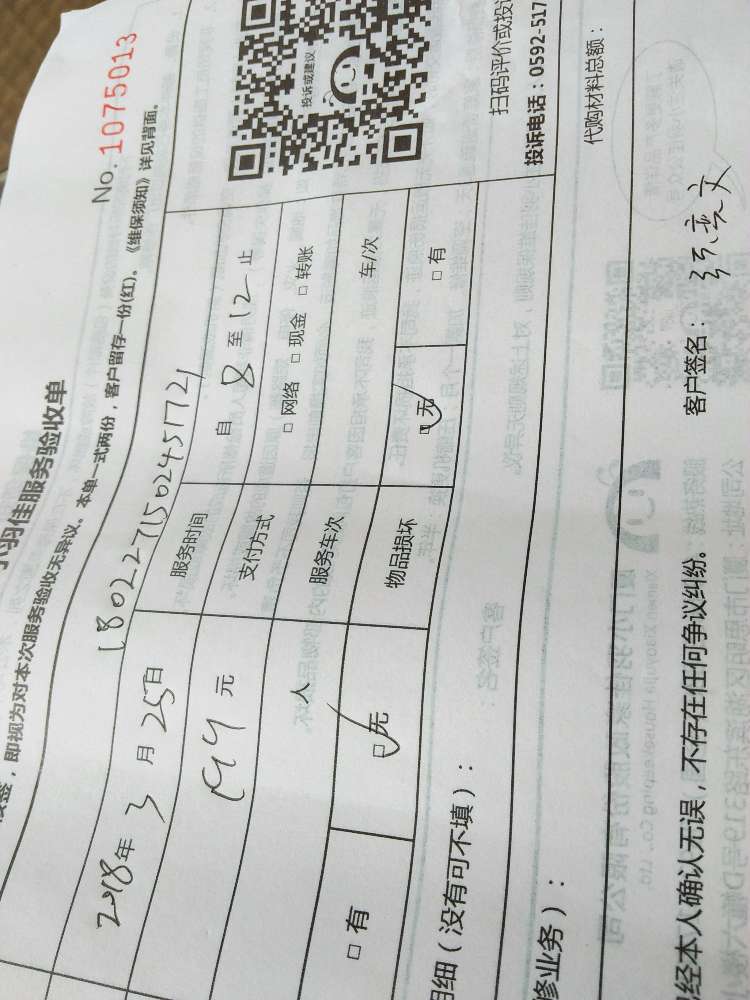 No. 1075013
羽佳服务验收单
,即视为对本次服务验收无异议。本单一式两份,客户留存一份(红)。《维保须知》详见背面。
1802271502451721
2018年3月25日 服务时间 自8至12止
199元 支付方式 □网络 □现金 □转账
人 服务车次 车/次
□有 □无 物品损坏 □无 □有
投诉或建议
扫码评价或投
投诉电话:0592-517
细(没有可不填):
代购材料总额:
修业务):
经本人确认无误,不存在任何争议纠纷。 客户签名: